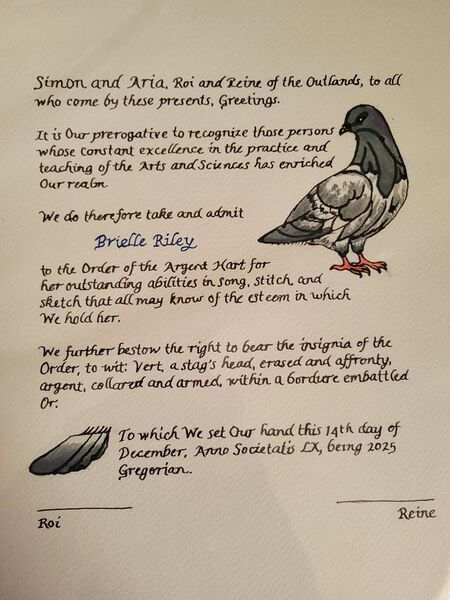 Simon and Aria, Roi and Reine of the Outlands, to all
who come by these presents, Greetings.
It is Our prerogative to recognize those persons
whose constant excellence in the practice and
teaching of the Arts and Sciences has enriched
Our realm.
We do therefore take and admit
Brielle Riley
to the Order of the Argent Hart for
her outstanding abilities in song, stitch, and
sketch that all may know of the esteem in which
We hold her.
We further bestow the right to bear the insignia of the
Order, to wit: Vert, a stag's head, erased and affronty,
argent, collared and armed, within a bordure embattled
Or.
To which We set Our hand this 14th day of
December, Anno Societatis LX, being 2025
Gregorian.
Roi
Reine